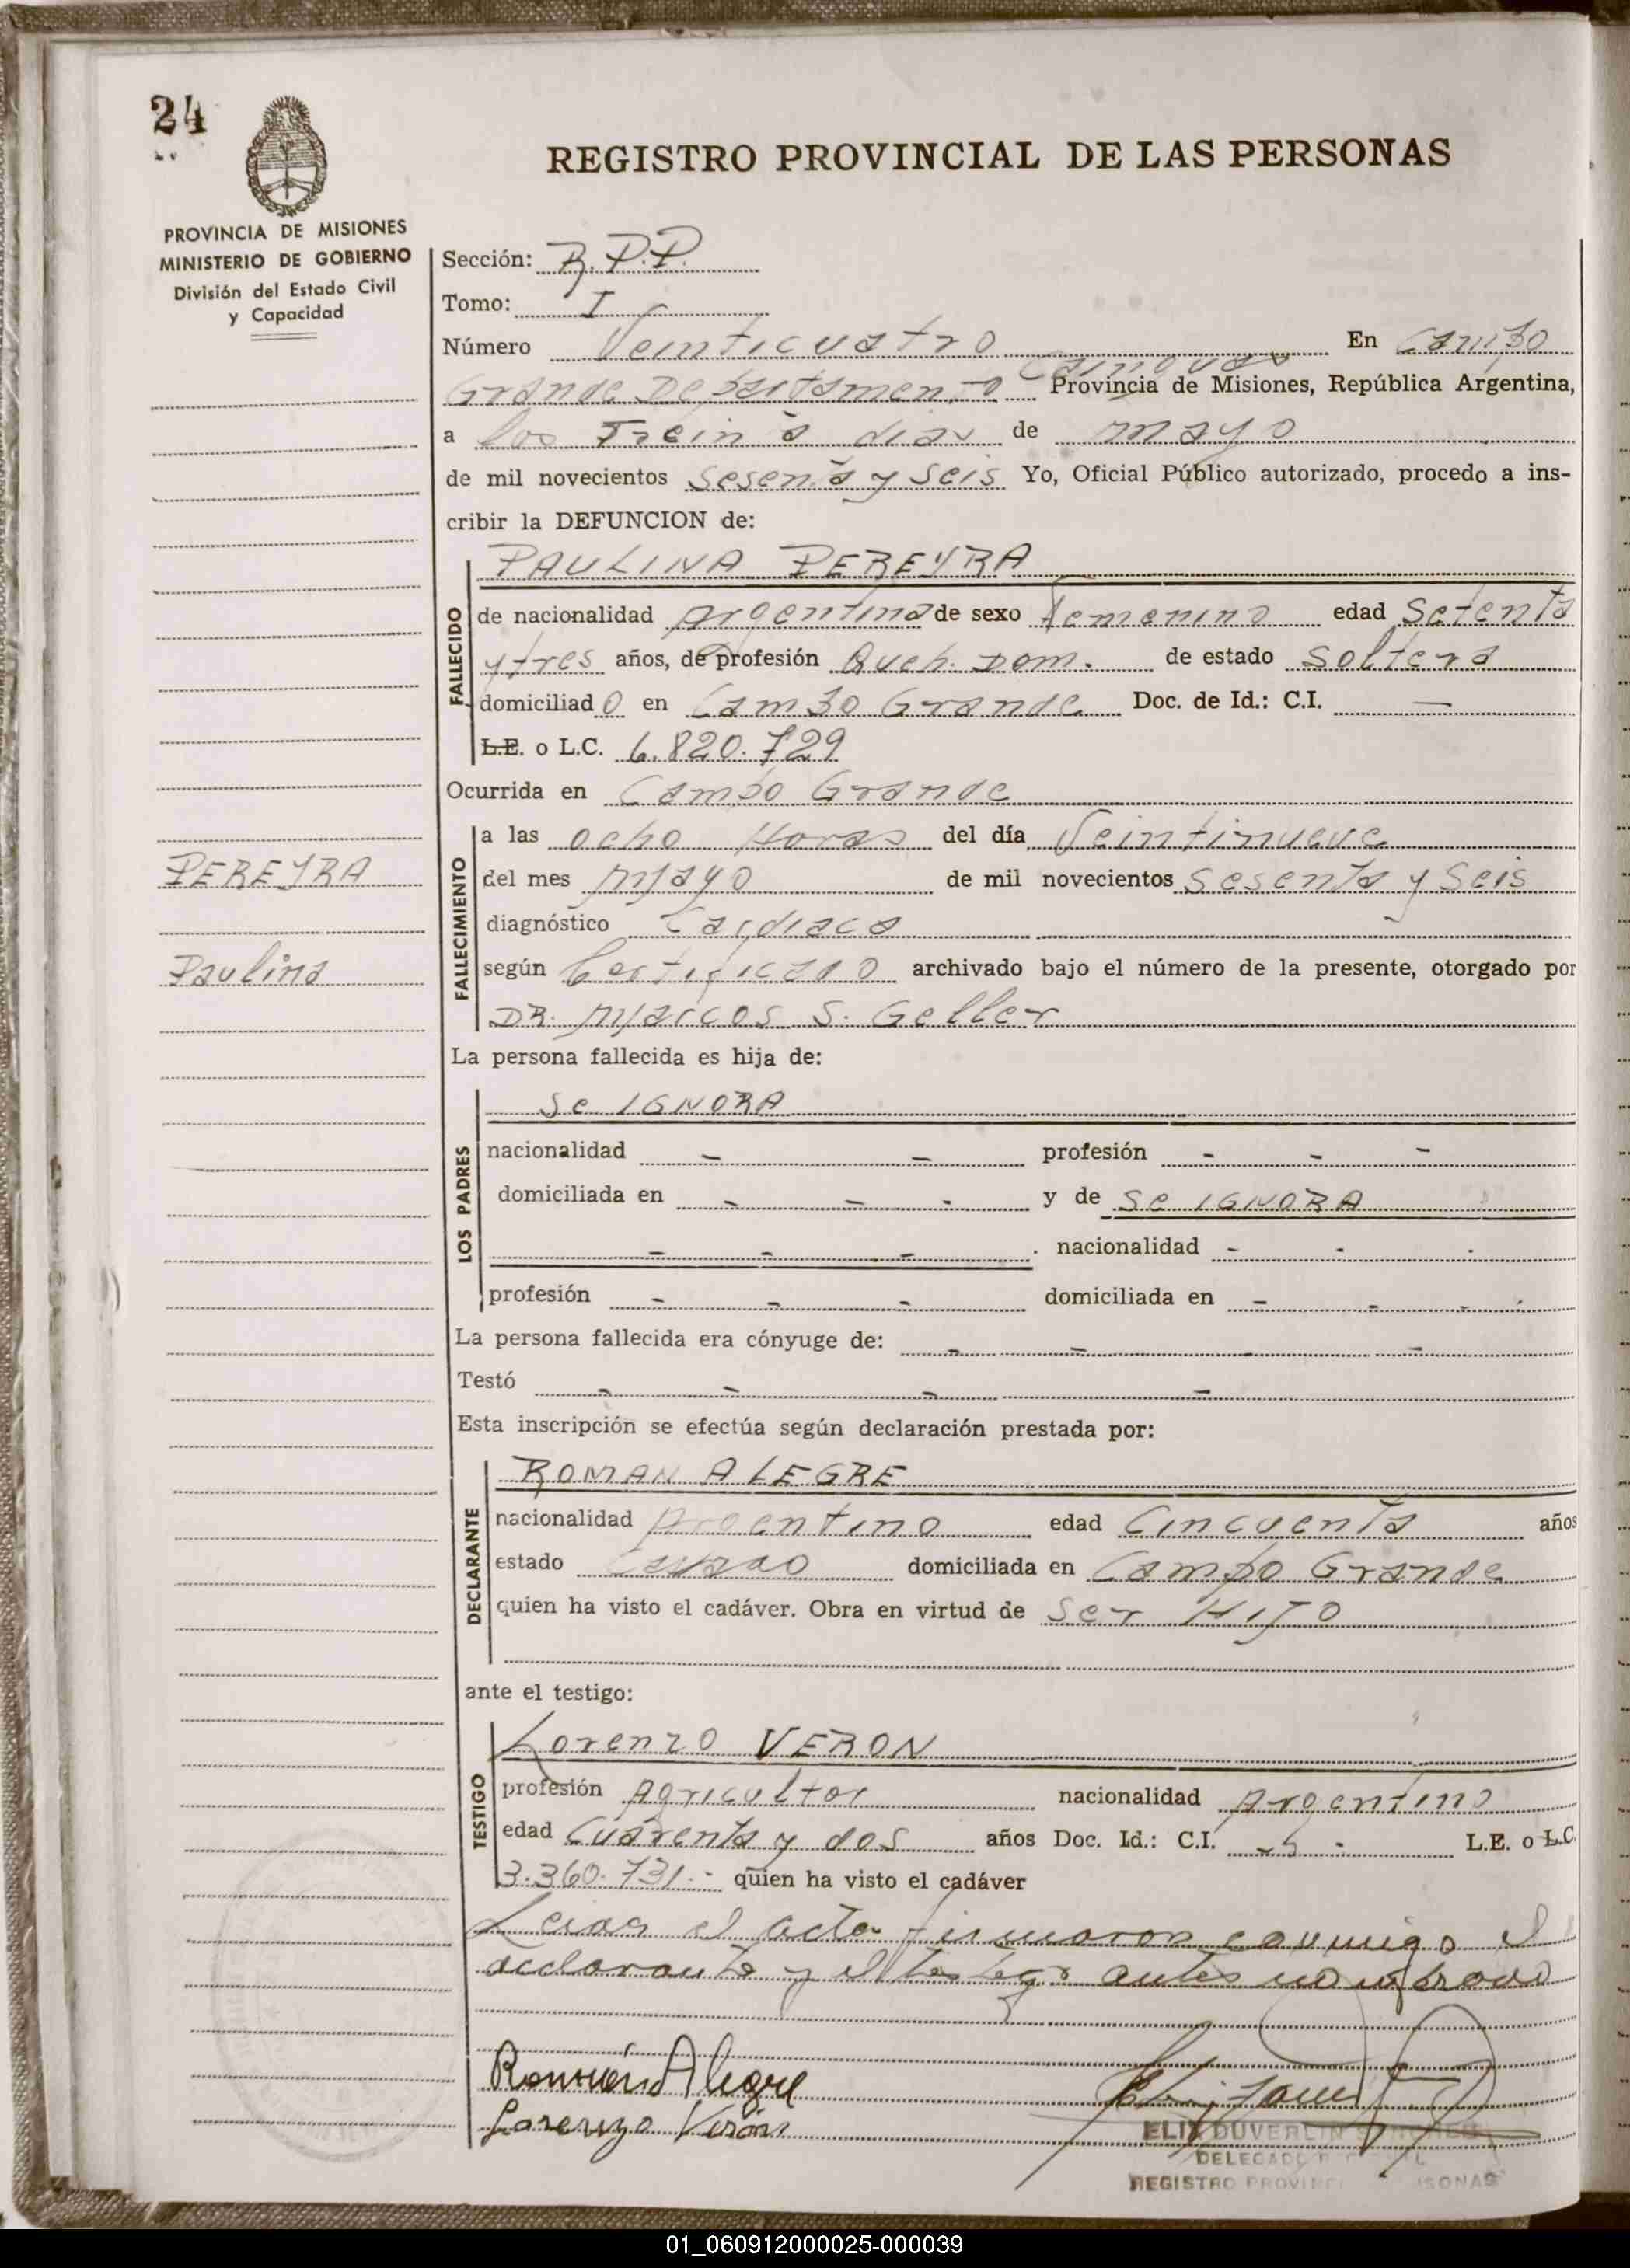 24
REGISTRO PROVINCIAL DE LAS PERSONAS
PROVINCIA DE MISIONES
MINISTERIO DE GOBIERNO
División del Estado Civil
y Capacidad
Sección: R.P.P.
Tomo: I
Número Veinticuatro En Campo
Grande Departamento Cainguas Provincia de Misiones, República Argentina,
a los Treinta dias de mayo
de mil novecientos sesenta y seis Yo, Oficial Público autorizado, procedo a ins-
cribir la DEFUNCION de:
FALLECIDO
PAULINA PEREYRA
de nacionalidad argentina de sexo femenino edad Setenta
y tres años, de profesión Queh. Dom. de estado soltera
domiciliado en Campo Grande Doc. de Id.: C.I. —
L.E. o L.C. 6.820.729
Ocurrida en Campo Grande
FALLECIMIENTO
a las ocho Horas del día Veintinueve
del mes mayo de mil novecientos sesenta y seis
diagnóstico Cardiaca
según Certificado archivado bajo el número de la presente, otorgado por
DR. Marcos S. Geller
PEREYRA
Paulina
La persona fallecida es hija de:
LOS PADRES
Se IGNORA
nacionalidad - - profesión - - -
domiciliada en - - - y de Se IGNORA
- - - . nacionalidad - - -
profesión - - - domiciliada en - - -
La persona fallecida era cónyuge de: - - - -
Testó - - - -
Esta inscripción se efectúa según declaración prestada por:
DECLARANTE
ROMAN ALEGRE
nacionalidad Argentino edad Cincuenta años
estado Casado domiciliada en Campo Grande
quien ha visto el cadáver. Obra en virtud de Ser HIJO
ante el testigo:
TESTIGO
Lorenzo VERON
profesión Agricultor nacionalidad Argentino
edad Cuarenta y dos años Doc. Id.: C.I. - L.E. o L.C.
3.360.731.- quien ha visto el cadáver
Leida el acta firmaron conmigo el
declarante y el testigo antes nombrado
Román Alegre
Lorenzo Verón
DUVERLIN
DELEGADO
REGISTRO PROVINCIAL PERSONAS
01_060912000025-000039